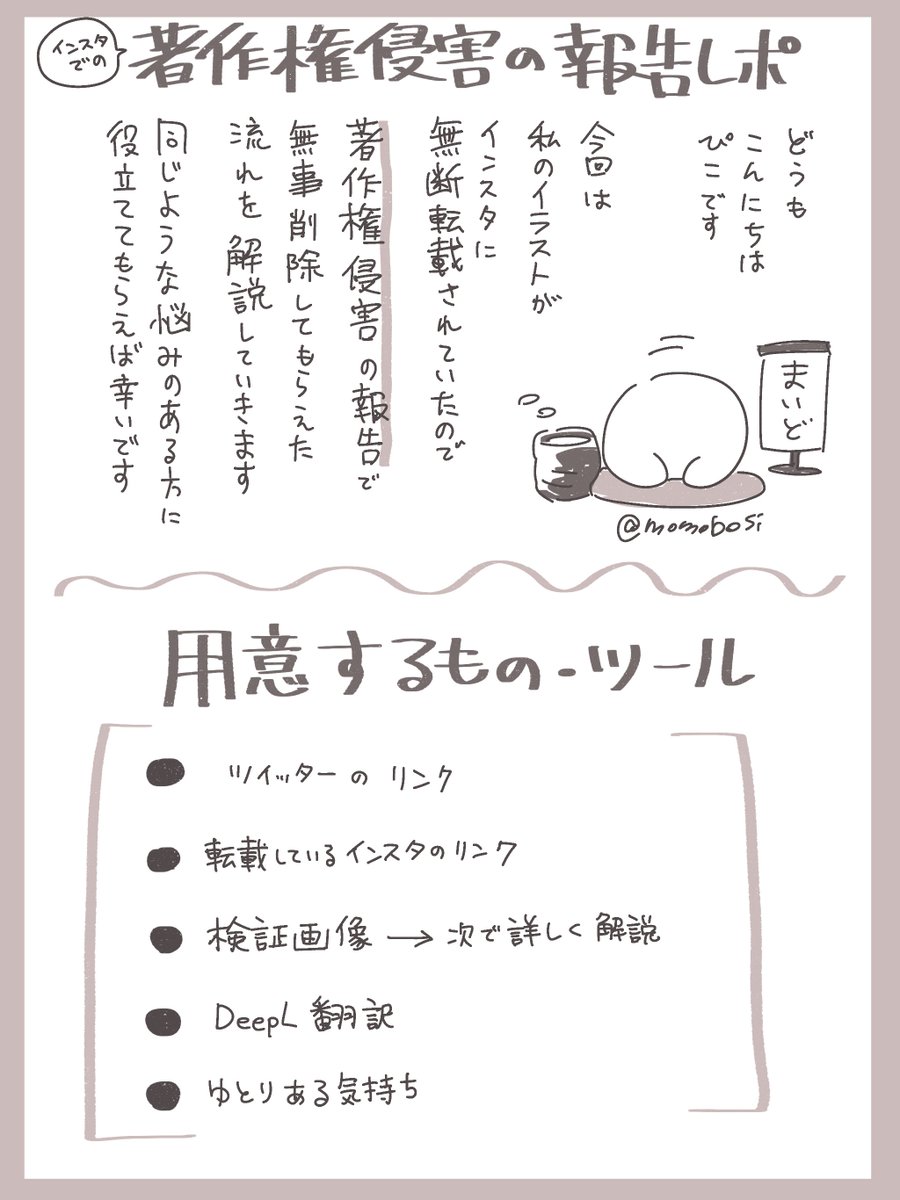 インスタ
での
著作権侵害の報告レポ
どうも
こんにちは
ぴこです
今回は
私のイラストが
インスタに
無断転載されていたので
著作権侵害の報告で
無事削除してもらえた
流れを解説していきます
同じような悩みのある方に
役立ててもらえば幸いです
まいど
@momobosi
用意するもの・ツール
● ツイッターのリンク
● 転載しているインスタのリンク
● 検証画像 → 次で詳しく解説
● DeepL翻訳
● ゆとりある気持ち